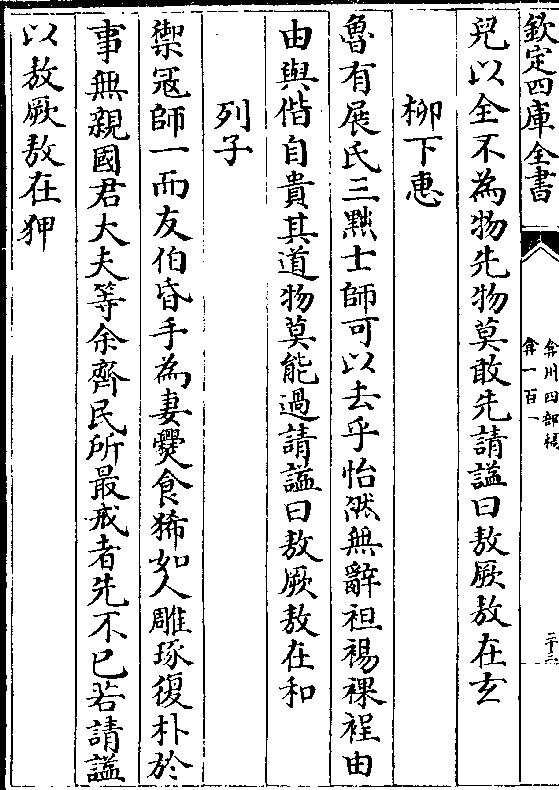 欽定四庫全書
弇州四部稿
卷一百一
二十三
兕以全不為物先物莫敢先請謚曰敖厥敖在玄
柳下惠
魯有展氏三黜士師可以去乎怡然無辭袒裼裸裎由
由與偕自貴其道物莫能過請謚曰敖厥敖在和
列子
禦冦師一而友伯昏手為妻㸑食狶如人雕琢復朴於
事無親國君大夫等余齊民所最戒者先不已若請謚
以敖厥敖在狎